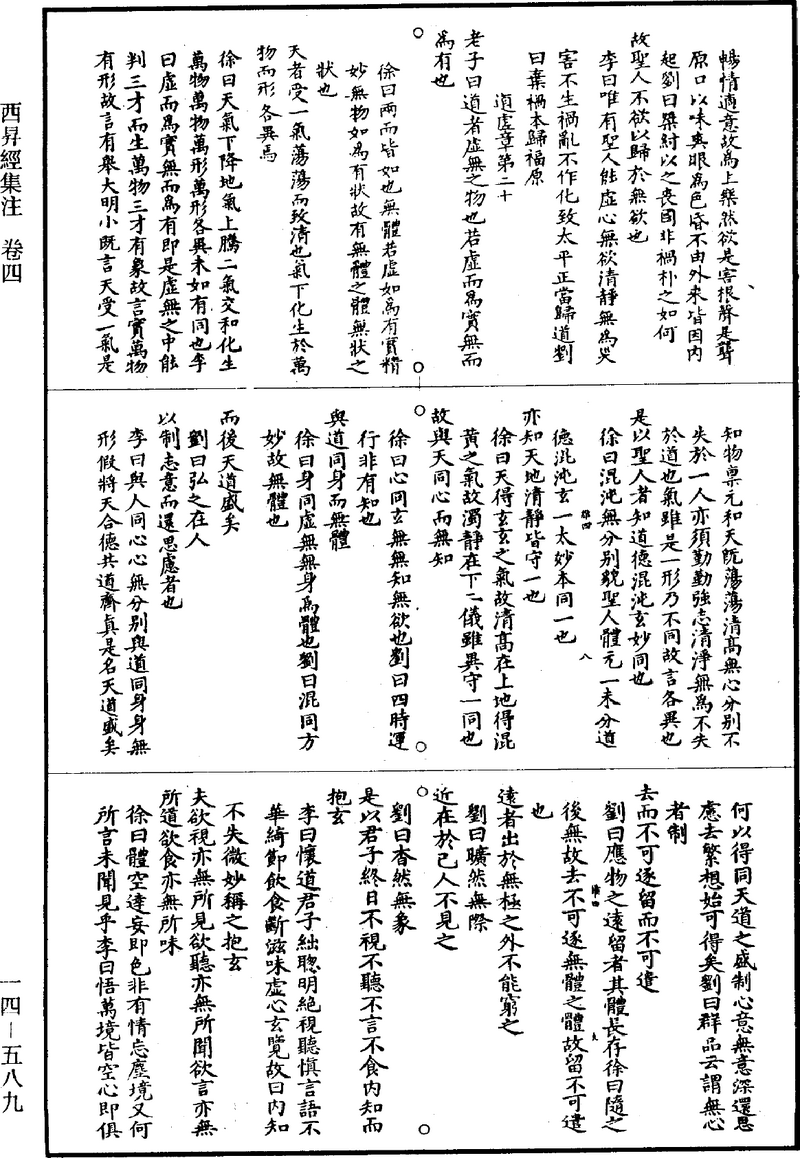 西昇經集注　卷四
暢情適意故為上樂然欲是害根聲是聾
原口以味爽眼為色昏不由外來皆因內
起劉曰桀紂以之喪國非禍朴之如何
故聖人不欲以歸於無欲也
李曰唯有聖人能虛心無欲清靜無為災
害不生禍亂不作化致太平正當歸道劉
曰棄禍本歸福原
道虛章第二十
老子曰道者虛無之物也若虛而為實無而
為有也
徐曰兩而皆如也無體若虛如為有實精
妙無物如為有狀故有無體之體無狀之
狀也
天者受一氣蕩蕩而致清也氣下化生於萬
物而形各異焉
徐曰天氣下降地氣上騰二氣交和化生
萬物萬物萬形萬形各異未如有同也李
曰虛而為實無而為有即是虛無之中能
判三才而生萬物三才有象故言實萬物
有形故言有舉大明小既言天受一氣是
知物稟元和天既蕩蕩清高無心分別不
失於一人亦須勤勤強志清淨無為不失
於道也氣雖是一形乃不同故言各異也
是以聖人者知道德混沌玄妙同也
徐曰混沌無分別貌聖人體元一未分道
德混沌玄一太妙本同一也
亦知天地清靜皆守一也
徐曰天得玄玄之氣故清高在上地得混
黃之氣故濁靜在下二儀雖異守一同也
故與天同心而無知
徐曰心同玄無無知無欲也劉曰四時運
行非有知也
與道同身而無體
徐曰身同虛無無身為體也劉曰混同方
妙故無體也
而後天道盛矣
劉曰弘之在人
以制志意而還思慮者也
李曰與人同心心無分別與道同身身無
形假將天合德共道齊真是名天道盛矣
何以得同天道之盛制心意無意深還思
慮去繁想始可得矣劉曰群品云謂無心
者制
去而不可逐留而不可遣
劉曰應物之遠留者其體長存徐曰隨之
後無故去不可逐無體之體故留不可遣
也
遠者出於無極之外不能窮之
劉曰曠然無際
近在於己人不見之
劉曰杳然無象
是以君子終日不視不聽不言不食內知而
抱玄
李曰懷道君子絀聰明絕視聽慎言語不
華綺節飲食斷滋味虛心玄覽故曰內知
不失微妙稱之抱玄
夫欲視亦無所見欲聽亦無所聞欲言亦無
所道欲食亦無所味
徐曰體空達妄即色非有情忘塵境又何
所言未聞見乎李曰悟萬境皆空心即俱
一四－五八九